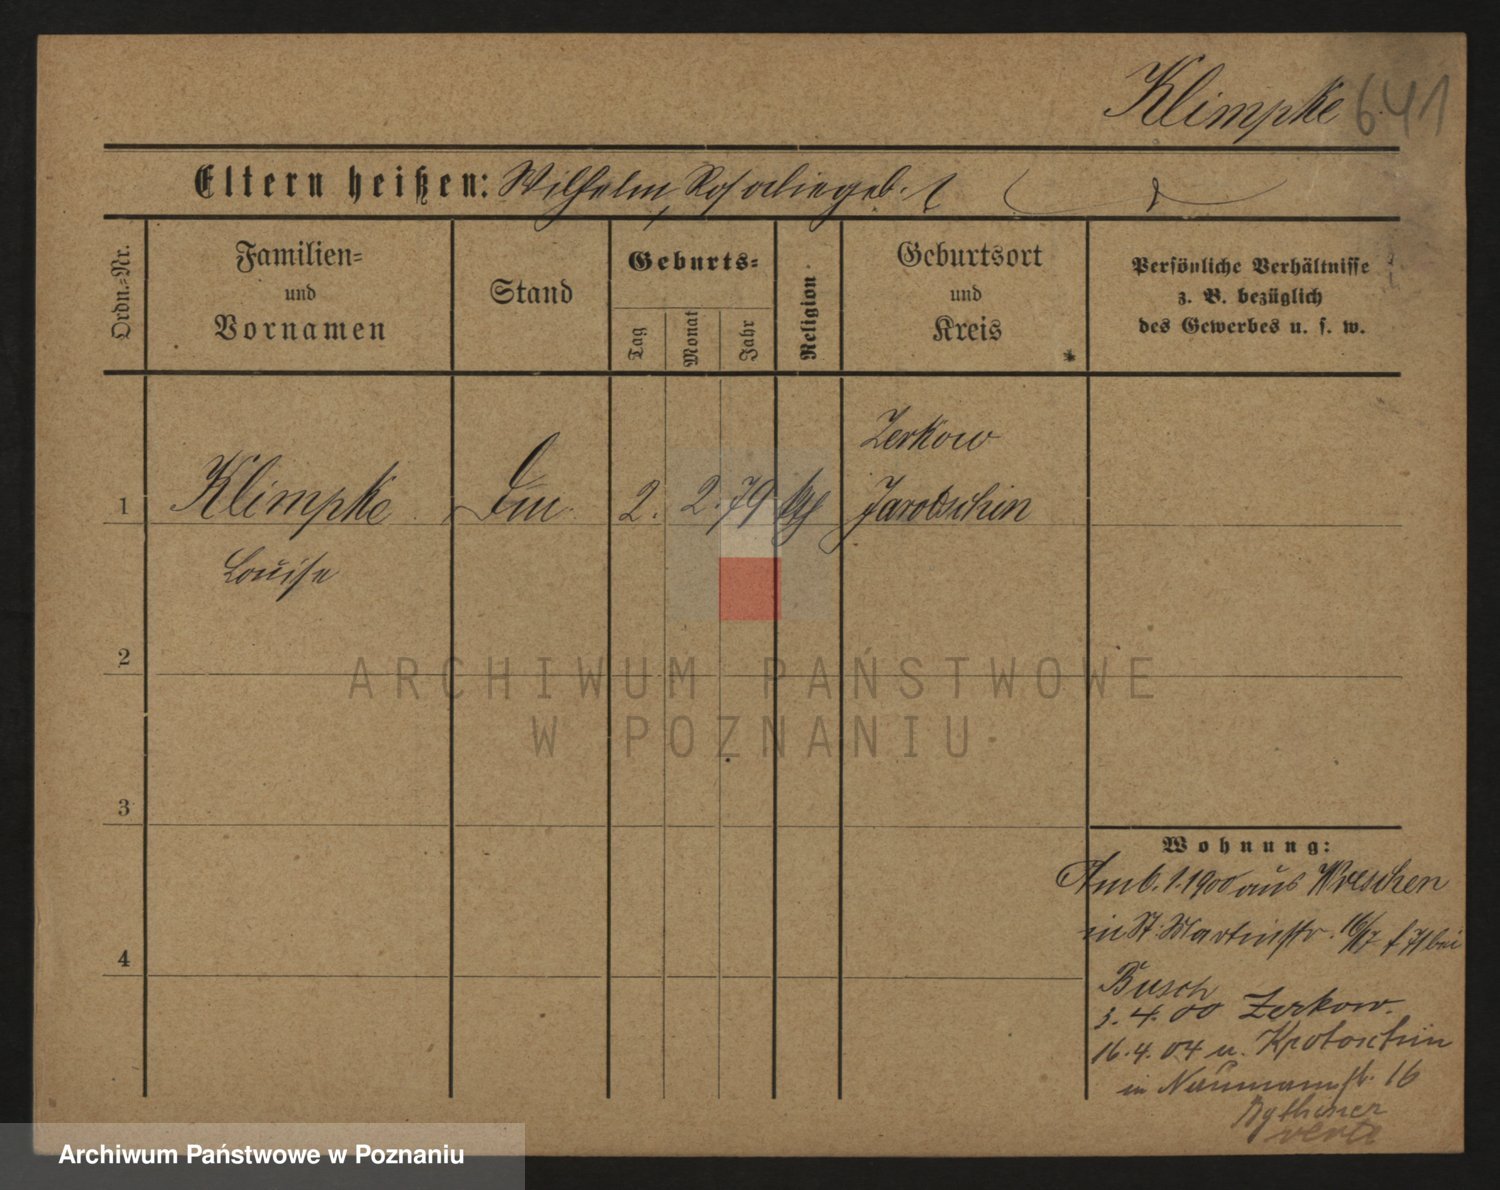 Klimpke 641
Eltern heißen: Wilhelm, Rosalie geb.
Ordn.-Nr.
Familien-
und
Vornamen
Stand
Geburts-
Tag
Monat
Jahr
Religion
Geburtsort
und
Kreis
Persönliche Verhältnisse
z. B. bezüglich
des Gewerbes u. s. w.
Zerkow
1 Klimpke 2. 2. 79 Jarotschin
Louise
2
3
4
ARCHIWUM PAŃSTWOWE
W POZNANIU
Wohnung:
Am 6. 1. 1900 aus Wreschen
in St. Martinstr. 16/17 bei
Busch
3. 4. 00 Zerkow.
16. 4. 04 u. Krotoschin
in Naumannstr. 16
verte
Archiwum Państwowe w Poznaniu